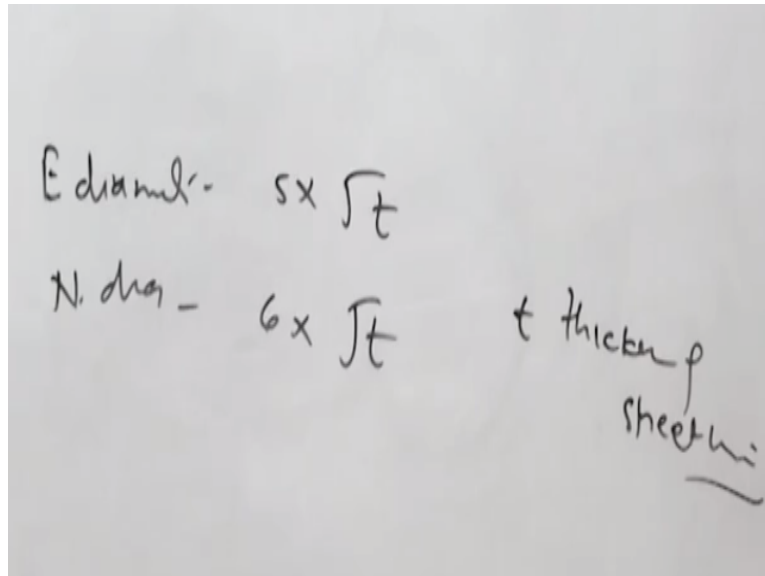 E diamet.- 5 x √t
N. dia - 6 x √t
t thickn of
sheet